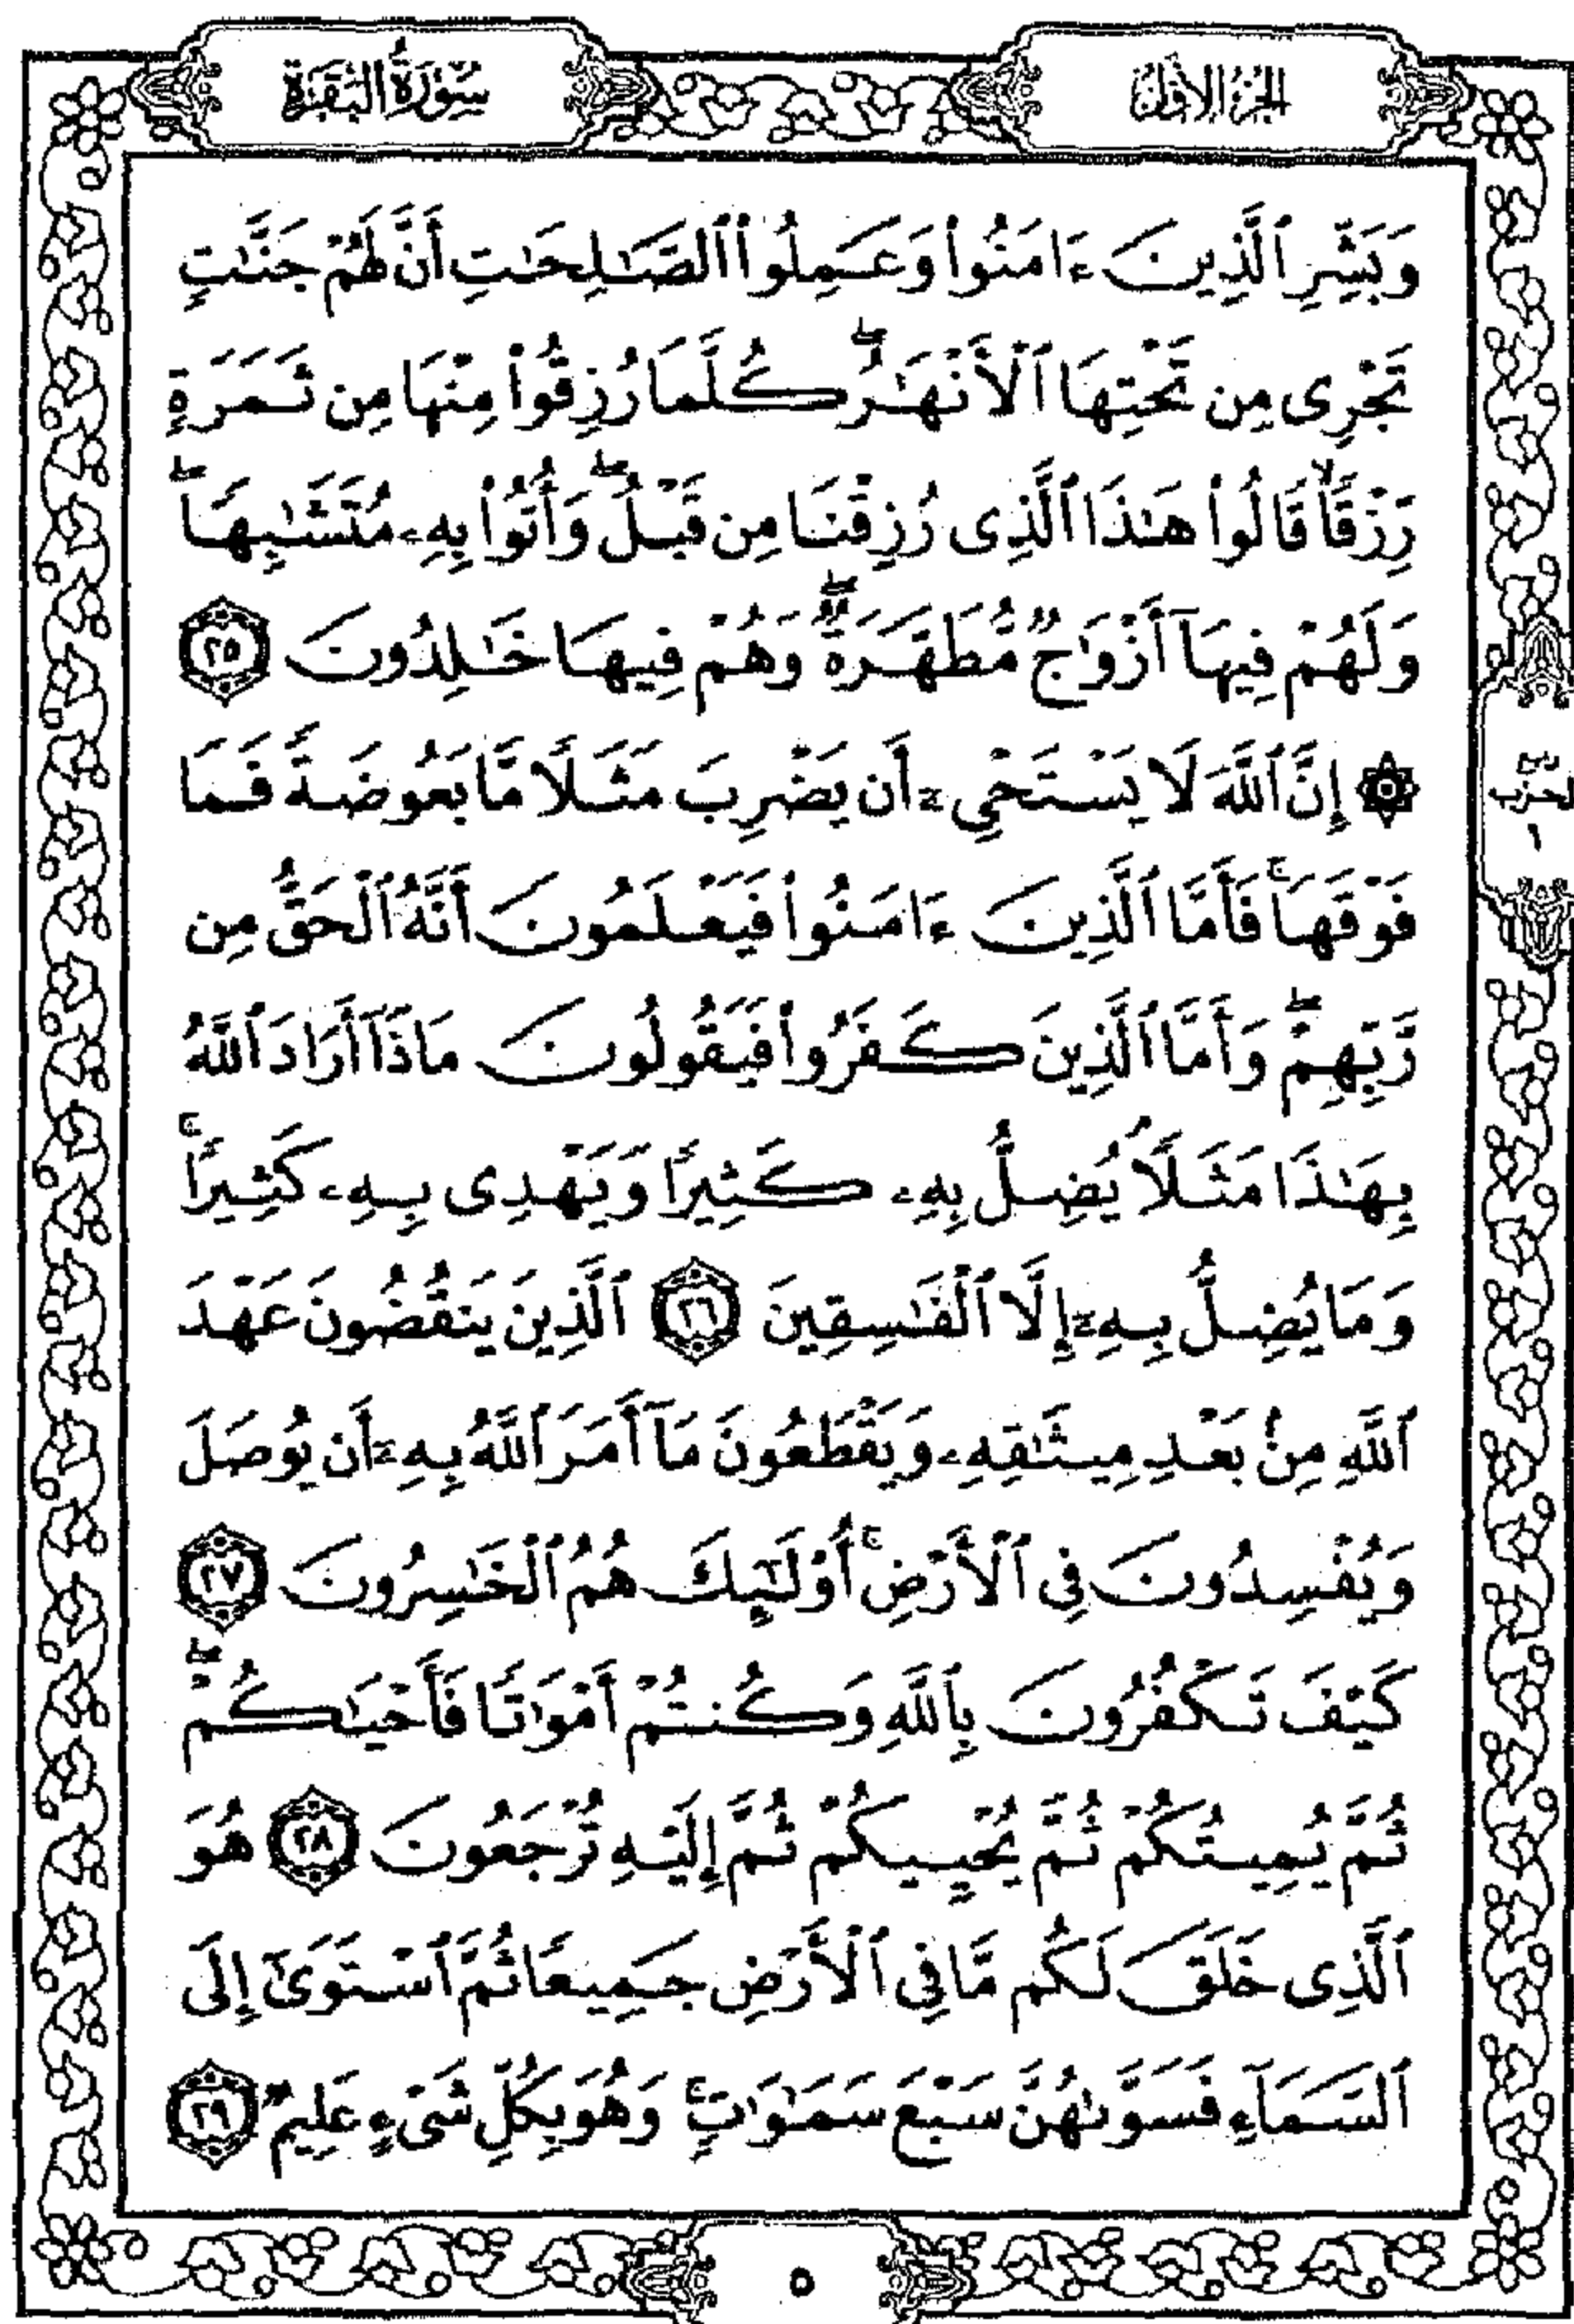 الجزء الأول
سورة البقرة
وَبَشِّرِ ٱلَّذِينَ ءَامَنُوا۟ وَعَمِلُوا۟ ٱلصَّـٰلِحَـٰتِ أَنَّ لَهُمْ جَنَّـٰتٍ
تَجْرِى مِن تَحْتِهَا ٱلْأَنْهَـٰرُ ۖ كُلَّمَا رُزِقُوا۟ مِنْهَا مِن ثَمَرَةٍ
رِّزْقًا ۙ قَالُوا۟ هَـٰذَا ٱلَّذِى رُزِقْنَا مِن قَبْلُ ۖ وَأُتُوا۟ بِهِۦ مُتَشَـٰبِهًا ۖ
وَلَهُمْ فِيهَآ أَزْوَٰجٌ مُّطَهَّرَةٌ ۖ وَهُمْ فِيهَا خَـٰلِدُونَ ٢٥
۞ إِنَّ ٱللَّهَ لَا يَسْتَحْىِۦٓ أَن يَضْرِبَ مَثَلًا مَّا بَعُوضَةً فَمَا
فَوْقَهَا ۚ فَأَمَّا ٱلَّذِينَ ءَامَنُوا۟ فَيَعْلَمُونَ أَنَّهُ ٱلْحَقُّ مِن
رَّبِّهِمْ ۖ وَأَمَّا ٱلَّذِينَ كَفَرُوا۟ فَيَقُولُونَ مَاذَآ أَرَادَ ٱللَّهُ
بِهَـٰذَا مَثَلًا ۘ يُضِلُّ بِهِۦ كَثِيرًا وَيَهْدِى بِهِۦ كَثِيرًا ۚ
وَمَا يُضِلُّ بِهِۦٓ إِلَّا ٱلْفَـٰسِقِينَ ٢٦ ٱلَّذِينَ يَنقُضُونَ عَهْدَ
ٱللَّهِ مِنۢ بَعْدِ مِيثَـٰقِهِۦ وَيَقْطَعُونَ مَآ أَمَرَ ٱللَّهُ بِهِۦٓ أَن يُوصَلَ
وَيُفْسِدُونَ فِى ٱلْأَرْضِ ۚ أُو۟لَـٰٓئِكَ هُمُ ٱلْخَـٰسِرُونَ ٢٧
كَيْفَ تَكْفُرُونَ بِٱللَّهِ وَكُنتُمْ أَمْوَٰتًا فَأَحْيَـٰكُمْ ۖ
ثُمَّ يُمِيتُكُمْ ثُمَّ يُحْيِيكُمْ ثُمَّ إِلَيْهِ تُرْجَعُونَ ٢٨ هُوَ
ٱلَّذِى خَلَقَ لَكُم مَّا فِى ٱلْأَرْضِ جَمِيعًا ثُمَّ ٱسْتَوَىٰٓ إِلَى
ٱلسَّمَآءِ فَسَوَّىٰهُنَّ سَبْعَ سَمَـٰوَٰتٍ ۚ وَهُوَ بِكُلِّ شَىْءٍ عَلِيمٌ ٢٩
١
٥